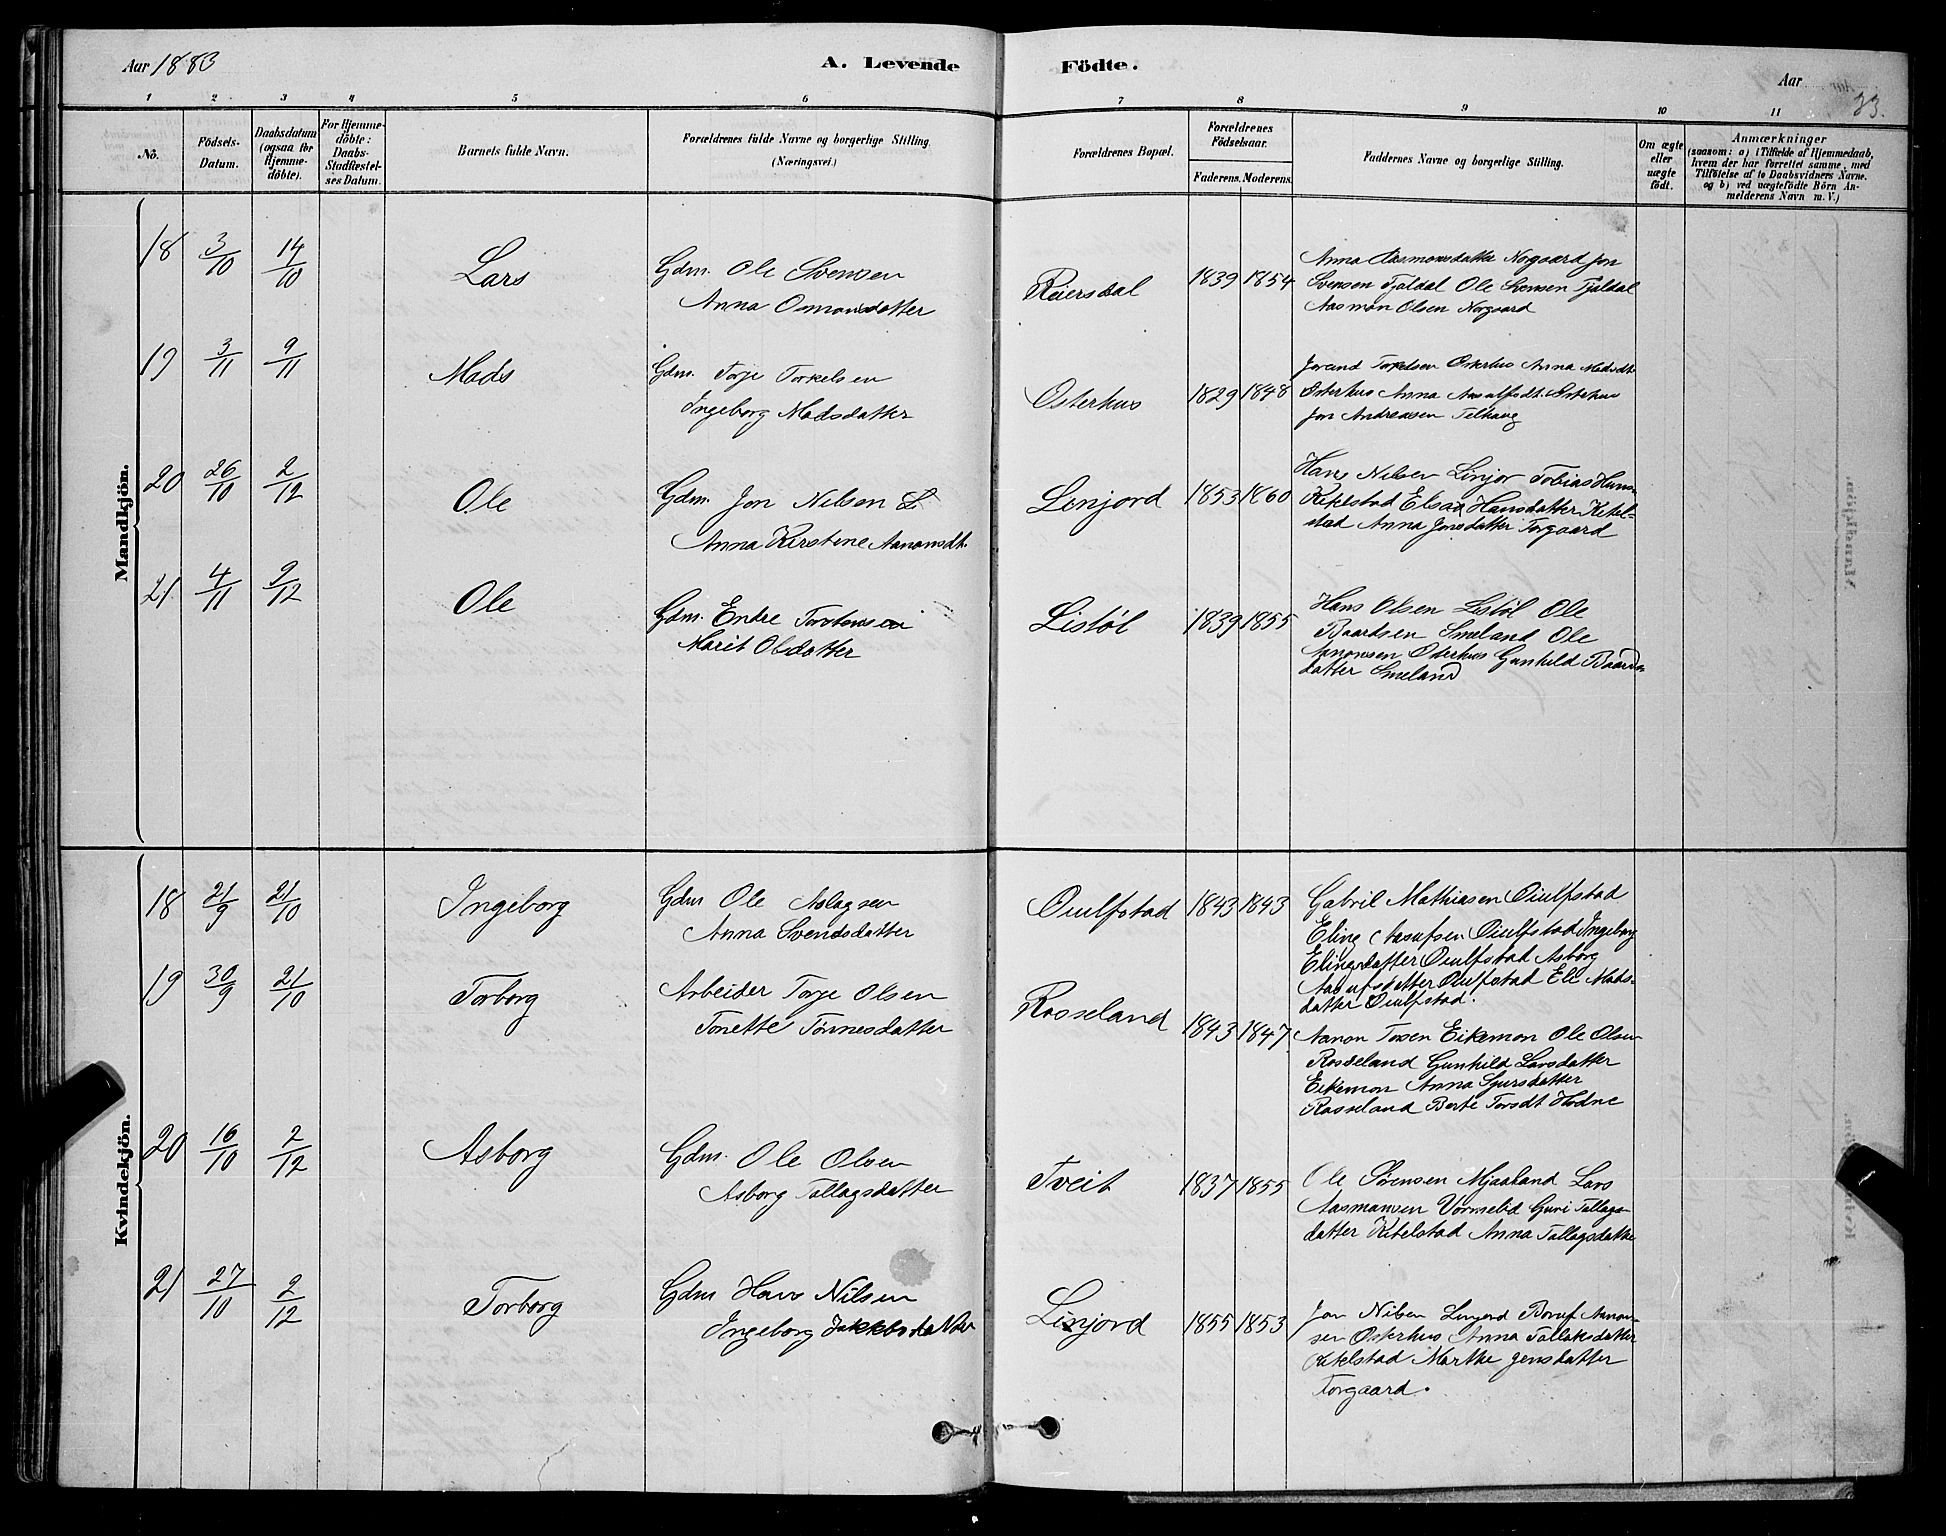 Aar 1883
A. Levende
Födte.
Aar
33.
1 2 3 4 5 6 7 8 9 10 11
No.
Födsels-Datum.
Daabsdatum (ogsaa for Hjemme-döbte).
For Hjemme-döbte: Daabs-Stadfæstel-ses Datum.
Barnets fulde Navn.
Forældrenes fulde Navne og borgerlige Stilling. (Næringsvei.)
Forældrenes Bopæl.
Forældrenes Födselsaar.
Faderens. Moderens.
Faddernes Navne og borgerlige Stilling.
Om ægte eller uægte födt.
Anmærkninger
(saasom: a) i Tilfælde af Hjemmedaab, hvem der har forrettet samme, med Tilföielse af to Daabsvidners Navne. og b) ved uægtefödte Börn An-melderens Navn m. V.)
Mandkjön.
18 3/10 14/10 Lars Gdm. Ole Svensen
Anna Osmondsdatter
Reiersdal 1839 1854
Anna Aasmonsdatter Norgaard Jon
Svensen Fjeldal Ole Svensen Fjeldal
Aasmon Olsen Norgaard
19 3/11 9/11 Mads Gdm. Torje Torkelsen
Ingeborg Madsdatter
Osterhus 1829 1848
Jorand Torkelsen Osterhus Anna Madsdt.
Osterhus Anna Aasulfsdt. Osterhus
Jon Andreasen
20 26/10 2/12 Ole Gdm. Jon Nilsen L.
Anna Kirstine Aanonsdt.
Linjord 1853 1860
Hans Nilsen Linjor Tobias Hans-
Kitelstad Elsa Hansdatter Kitel-
stad Anna Jonsdatter Torgaard
21 4/11 9/12 Ole Gdm. Endre Torstensen
Marit Olsdatter
Listöl 1839 1855
Hans Olsen Listöl Ole
Baardsen Smeland Ole
Aanonsen Osterhus Gunhild Baards-
datter Smeland
Kvindekjön.
18 21/9 21/10 Ingeborg Gdm Ole Aslagsen
Anna Svendsdatter
Öiulfstad 1843 1843
Gabril Mathiasen Öiulfstad
Eling Aasufsen Öiulfstad Ingeborg
Elingsdatter Öiulfstad Asborg
Aasufsdatter Öiulfstad Eli Mads-
datter Öiulfstad.
19 30/9 21/10 Torborg Arbeider Torje Olsen
Tonette Tönnesdatter
Rosseland 1843 1847
Aanon Torsen Eikemon Ole Olsen
Rosseland Gunhild Larsdatter
Eikemon Anna Sjursdatter
Rosseland Berte Torsdt Hodne
20 16/10 2/12 Asborg Gdm. Ole Olsen
Asborg Tallagsdatter
Tveit 1837 1855
Ole Sörensen Mjaaland Lars
Aasmansen Vormelid Guri Tallags-
datter Kitelstad Anna Tallagsdatter
21 27/10 2/12 Torborg Gdm Hans Nilsen
Ingeborg Jakkobsdatter
Linjord 1855 1853
Jon Nilsen Linjord Boruf Aanon-
sen Osterhus Anna Tallaksdatter
Kitelstad Marthe Jensdatter
Torgaard.